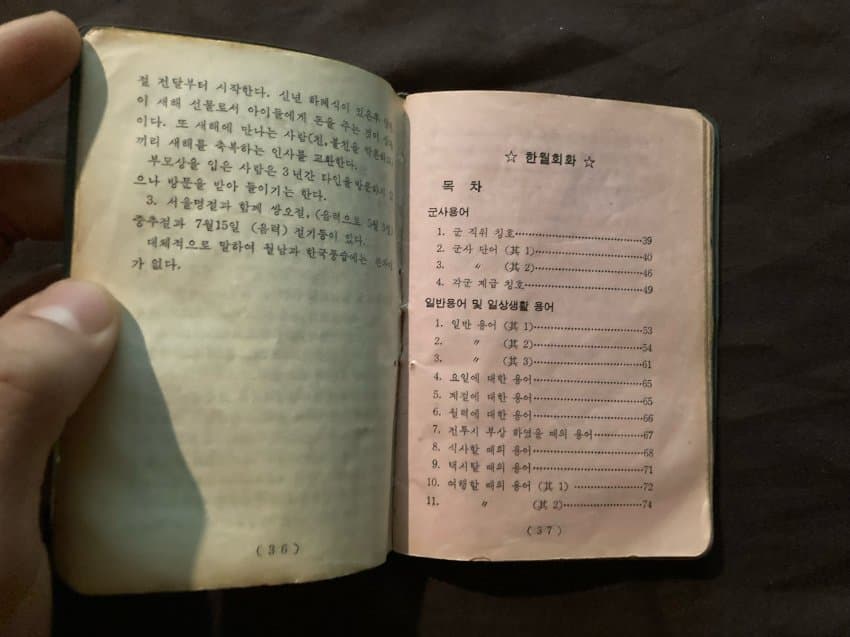 절 전달부터 시작한다. 신년 하례식이 있은후
이 새해 선물로서 아이들에게 돈을 주는 것이
이다. 또 새해에 만나는 사람(친, 불친을 막론하고)
끼리 새해를 축복하는 인사를 교환한다.
부모상을 입은 사람은 3년간 타인을 방문하지
으나 방문을 받아 들이기는 한다.
3. 서울명절과 함께 쌍오절, (음력으로 5월 5일)
중추절과 7월15일 (음력) 절기등이 있다.
대체적으로 말하여 월남과 한국풍습에는
가 없다.
(36)
☆ 한월회화 ☆
목 차
군사용어
1. 군 직위 칭호……39
2. 군사 단어 (其 1)……40
3. 〃 (其 2)……46
4. 각군 계급 칭호……49
일반용어 및 일상생활 용어
1. 일반 용어 (其 1)……53
2. 〃 (其 2)……54
3. 〃 (其 3)……61
4. 요일에 대한 용어……65
5. 계절에 대한 용어……65
6. 월력에 대한 용어……66
7. 전투시 부상 하였을 때의 용어……67
8. 식사할 때의 용어……68
9. 택시탈 때의 용어……71
10. 여행할 때의 용어 (其 1)……72
11. 〃 (其 2)……74
(37)